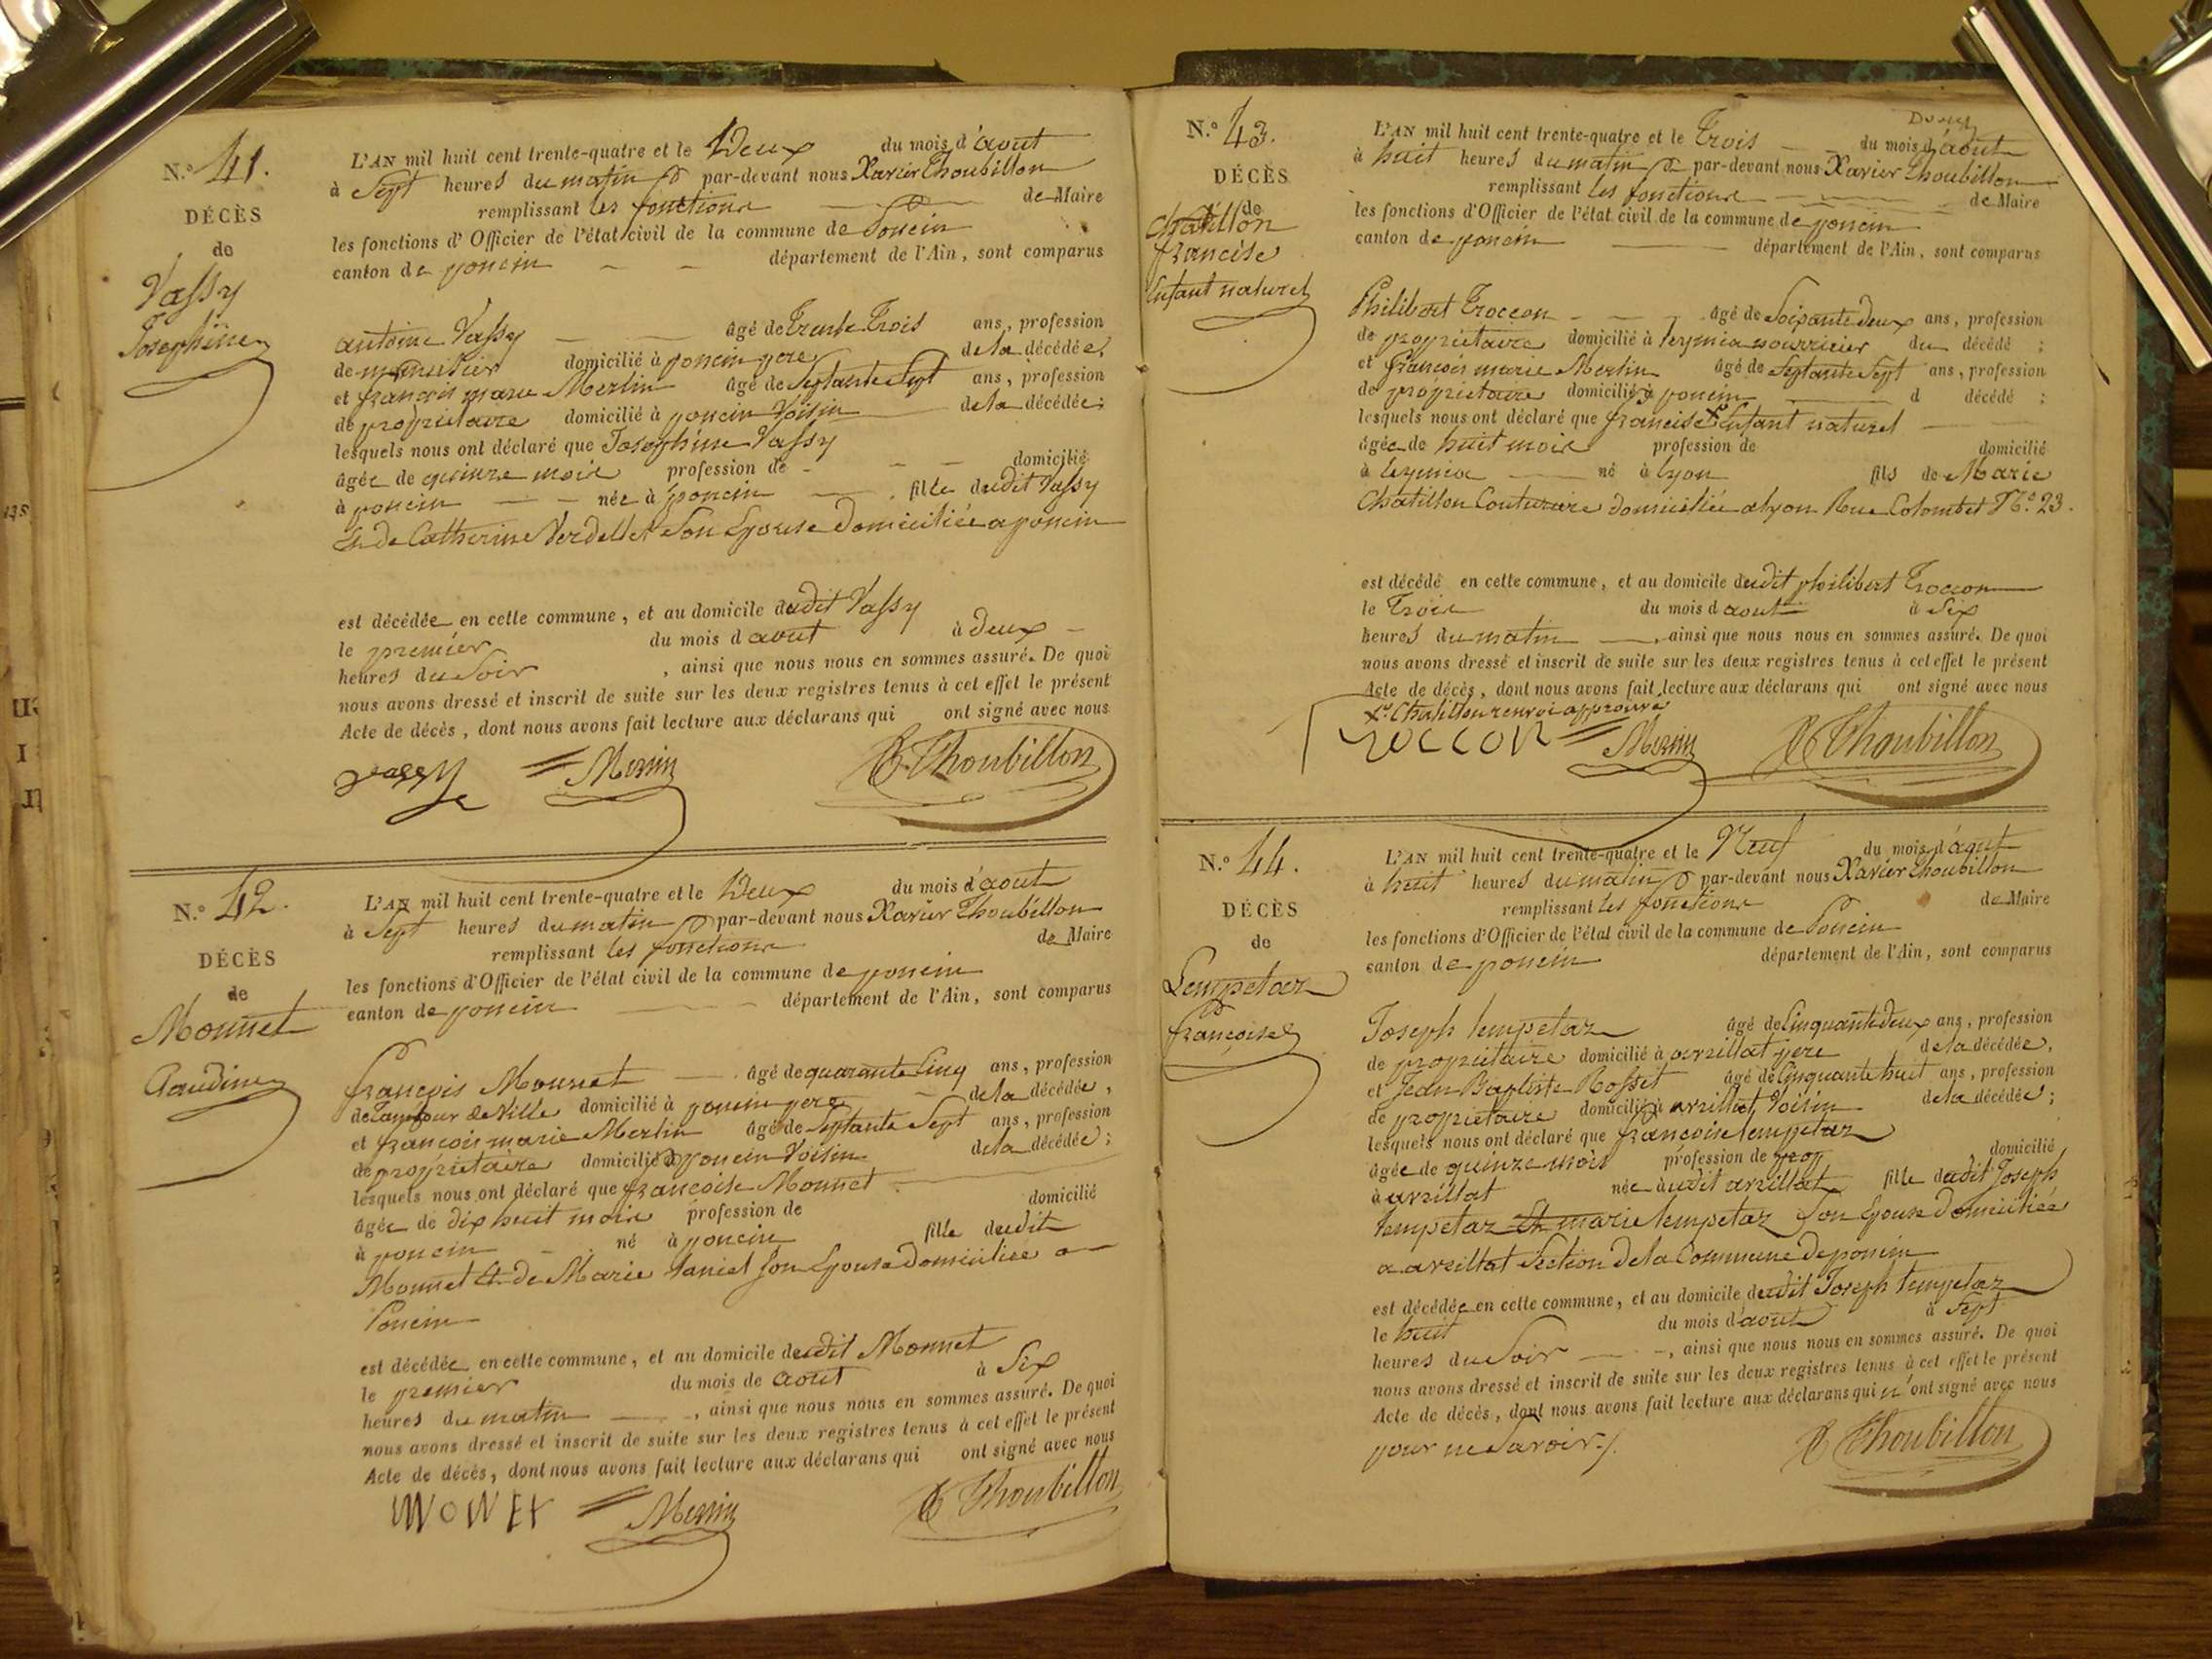 N.° 41.
DÉCÈS
de
Vassy
Josephine
L'AN mil huit cent trente-quatre et le Deux du mois d'aout
à Sept heures du matin par-devant nous Xavier Thoubillon
remplissant les fonctions de Maire
les fonctions d'Officier de l'état civil de la commune de Poncin
canton de poncin département de l'Ain, sont comparus
antoine Vassy âgé de Trente Trois ans, profession
de domicilié à poncin pere de la décédée,
et françois marie Merlin âgé de Septante Sept ans, profession
de propriétaire domicilié à poncin Voisin de la décédée;
lesquels nous ont déclaré que Josephine Vassy
âgée de quinze mois profession de domicilié
à poncin née à poncin fille dudit Vassy
Et de Catherine Verdellet Son Epouse domiciliée a poncin
est décédée en cette commune, et au domicile dudit Vassy
le premier du mois d aout à deux
heures du Soir, ainsi que nous nous en sommes assuré. De quoi
nous avons dressé et inscrit de suite sur les deux registres tenus à cet effet le présent
Acte de décès, dont nous avons fait lecture aux déclarans qui ont signé avec nous
vassy Merlin X Thoubillon
N.° 42.
DÉCÈS
de
Monnet
Claudine
L'AN mil huit cent trente-quatre et le Deux du mois d'aout
à Sept heures du matin par-devant nous Xavier Thoubillon
remplissant les fonctions de Maire
les fonctions d'Officier de l'état civil de la commune de poncin
canton de poncin département de l'Ain, sont comparus
françois Monnet âgé de quarante Cinq ans, profession
de Tambour de Ville domicilié à poncin pere de la décédée,
et françois marie Merlin âgé de Septante Sept ans, profession
de propriétaire domicilié à poncin Voisin de la décédée;
lesquels nous ont déclaré que françoise Monnet
âgée de dix huit mois profession de domicilié
à poncin né à poncin fille dudit
Monnet Et de Marie Janiel Son Epouse domiciliée a
Poncin
est décédée en cette commune, et au domicile dudit Monnet
le premier du mois de aout à Six
heures du matin, ainsi que nous nous en sommes assuré. De quoi
nous avons dressé et inscrit de suite sur les deux registres tenus à cet effet le présent
Acte de décès, dont nous avons fait lecture aux déclarans qui ont signé avec nous
MONET Merlin X Thoubillon
N.° 43.
DÉCÈS
de
Chatillon
francise
Enfant naturel
L'AN mil huit cent trente-quatre et le Trois du mois d'aout
à huit heures du matin par-devant nous Xavier Thoubillon
remplissant les fonctions de Maire
les fonctions d'Officier de l'état civil de la commune de poncin
canton de poncin département de l'Ain, sont comparus
Philibert Troccon âgé de Soixante deux ans, profession
de propriétaire domicilié à leymia nourricier du décédé;
et françois marie Merlin âgé de Septante Sept ans, profession
de propriétaire domicilié à poncin d décédé;
lesquels nous ont déclaré que francise Enfant naturel
âgée de huit mois profession de domicilié
à leymia né à lyon fils de Marie
Chatillon Couturiere domiciliée a lyon Rue Colombet N.° 23.
est décédé en cette commune, et au domicile dudit philibert Troccon
le Trois du mois d aout à Six
heures du matin, ainsi que nous nous en sommes assuré. De quoi
nous avons dressé et inscrit de suite sur les deux registres tenus à cet effet le présent
Acte de décès, dont nous avons fait lecture aux déclarans qui ont signé avec nous
Chatillon renvoi approuvé
Troccon Merlin X Thoubillon
N.° 44.
DÉCÈS
de
Lempetaz
françoise
L'AN mil huit cent trente-quatre et le Neuf du mois d'aout
à huit heures du matin par-devant nous Xavier Thoubillon
remplissant les fonctions de Maire
les fonctions d'Officier de l'état civil de la commune de Poncin
canton de poncin département de l'Ain, sont comparus
Joseph lempetaz âgé de Cinquante deux ans, profession
de propriétaire domicilié à arzillat pere de la décédée,
et Jean Baptiste Rosset âgé de Cinquante huit ans, profession
de propriétaire domicilié à arzillat Voisin de la décédée;
lesquels nous ont déclaré que françoise lempetaz
âgée de quinze mois profession de domicilié
à arzillat née audit arzillat fille dudit Joseph
lempetaz Et marie lempetaz Son Epouse domiciliée
a arzillat Section de la Commune de poncin
est décédée en cette commune, et au domicile dudit Joseph lempetaz
le huit du mois d'aout à Sept
heures du Soir, ainsi que nous nous en sommes assuré. De quoi
nous avons dressé et inscrit de suite sur les deux registres tenus à cet effet le présent
Acte de décès, dont nous avons fait lecture aux déclarans qui n'ont signé avec nous
pour ne Savoir./.
X Thoubillon